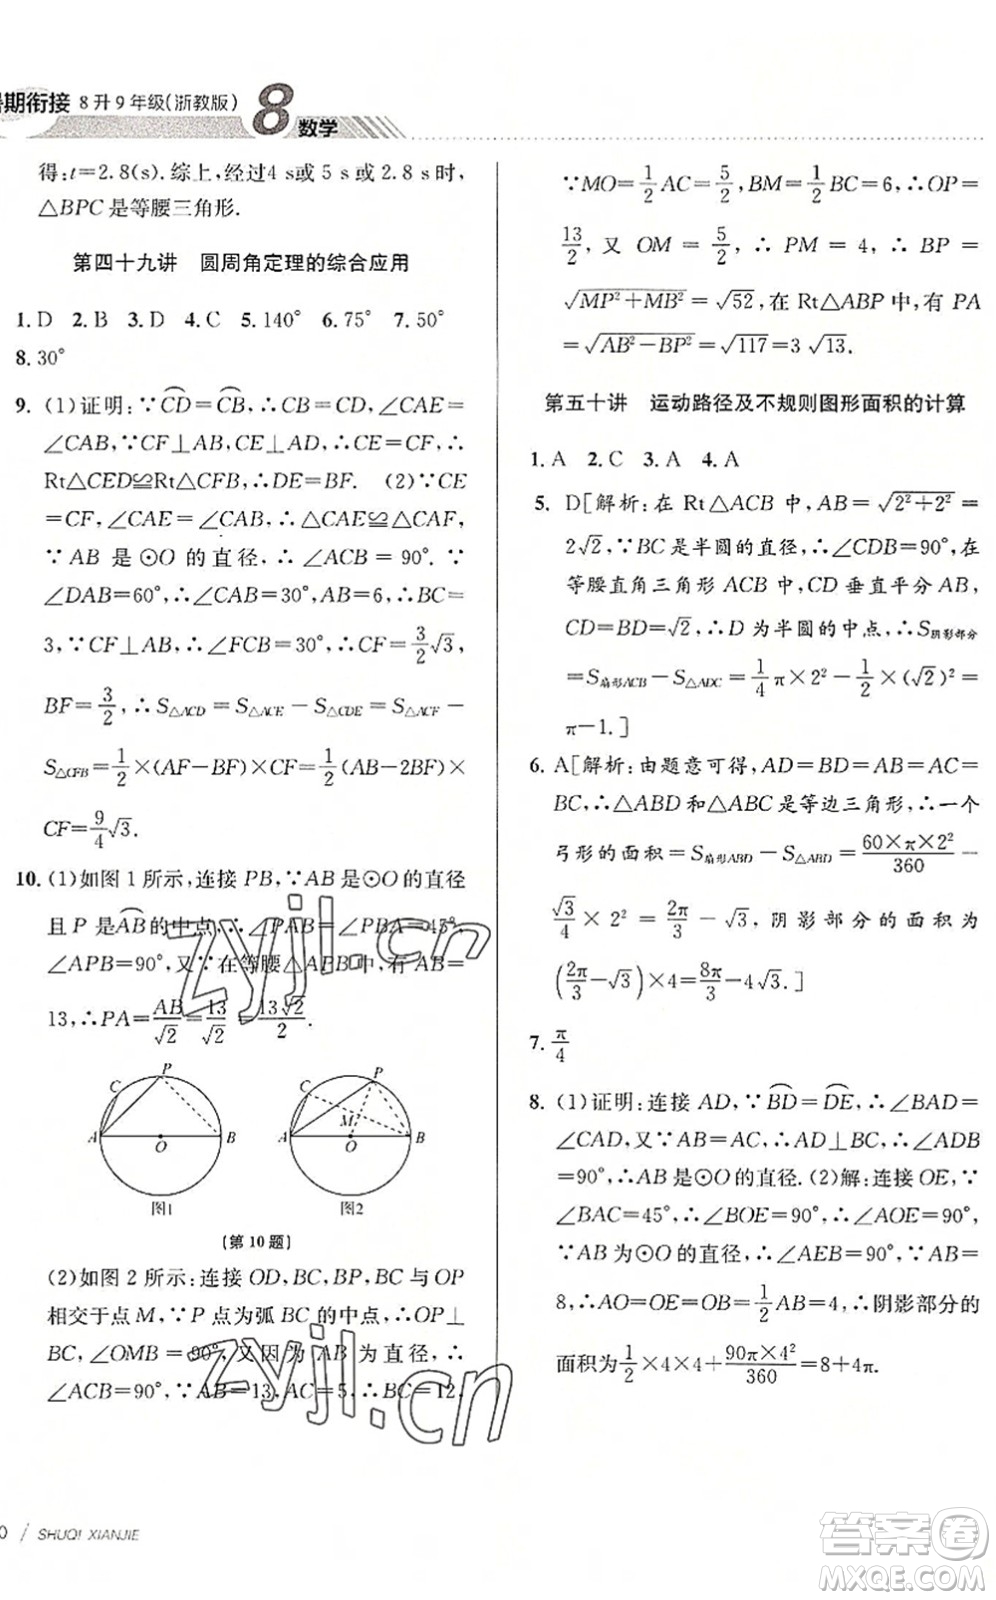 暑期衔接 8升9年级(浙教版) 8 数学
得:t=2.8(s).综上,经过4 s或5 s或2.8 s时,
△BPC是等腰三角形.
第四十九讲 圆周角定理的综合应用
1.D 2.B 3.D 4.C 5.140° 6.75° 7.50°
8.30°
9.(1)证明:∵⌒CD=⌒CB,∴CB=CD,∠CAE=
∠CAB,∵CF⊥AB,CE⊥AD,∴CE=CF,∴
Rt△CED≌Rt△CFB. (2)∵CE
=CF,∠CAE=∠CAB,∴△CAE≌△CAF,
∵AB是⊙O的直径,∴∠ACB=90°.∵
∠DAB=60°,∴∠CAB=30°,AB=6,∴BC=
3,∵CF⊥AB,∴∠FCB=30°,∴CF=3/2√3,
BF=3/2,∴S△ACD=S△ACE−S△CDE=S△ACF−
S△CFB=1/2×(AF−BF)×CF=1/2(AB−2BF)×
CF=9/4√3.
10.(1)如图1所示,连接PB,∵AB是⊙O的直径
且P是⌒AB的中点,∴∠PAB=∠PBA=45°,
∠APB=90°,又∵在等腰△APB中,有AB=
13,∴PA=AB/√2=13/√2=13√2/2.
C P A O B
图1
C P M A O B
图2
(第10题)
(2)如图2所示:连接OD,BC,BP,BC与OP
相交于点M,∵P点为弧BC的中点,∴OP⊥
BC,∠OMB=90°,又因为AB为直径,∴
∠ACB=90°.∵AB=13,AC=5,∴BC=12,
∵MO=1/2AC=5/2,BM=1/2BC=6,∴OP=
13/2,又OM=5/2,∴PM=4,∴BP=
√(MP²+MB²)=√52,在Rt△ABP中,有PA
=√(AB²−BP²)=√117=3√13.
第五十讲 运动路径及不规则图形面积的计算
1.A 2.C 3.A 4.A
5.D[解析:在Rt△ACB中,AB=√(2²+2²)=
2√2,∵BC是半圆的直径,∴∠CDB=90°,在
等腰直角三角形ACB中,CD垂直平分AB,
CD=BD=√2,∴D为半圆的中点,∴S阴影部分
=S扇形ACB−S△ADC=1/4π×2²−1/2×(√2)²=
π−1.]
6.A[解析:由题意可得,AD=BD=AB=AC=
BC,∴△ABD和△ABC是等边三角形,∴一个
弓形的面积=S扇形ABD−S△ABD=60×π×2²/360−
√3/4×2²=2π/3−√3,阴影部分的面积为
(2π/3−√3)×4=8π/3−4√3.]
7.π/4
8.(1)证明:连接AD,∵⌒BD=⌒DE,∴∠BAD=
∠CAD,又∵AB=AC,∴AD⊥BC,∴∠ADB
=90°,∴AB是⊙O的直径.(2)解:连接OE,∵
∠BAC=45°,∴∠BOE=90°,∠AOE=90°,
∵AB为⊙O的直径,∴∠AEB=90°.∵AB=
8,∴AO=OE=OB=1/2AB=4,∴阴影部分的
面积为1/2×4×4+90π×4²/360=8+4π.
0 / SHUQI XIANJIE
zyjl.cn
zyjl.cn
答案卷
MXQE.COM